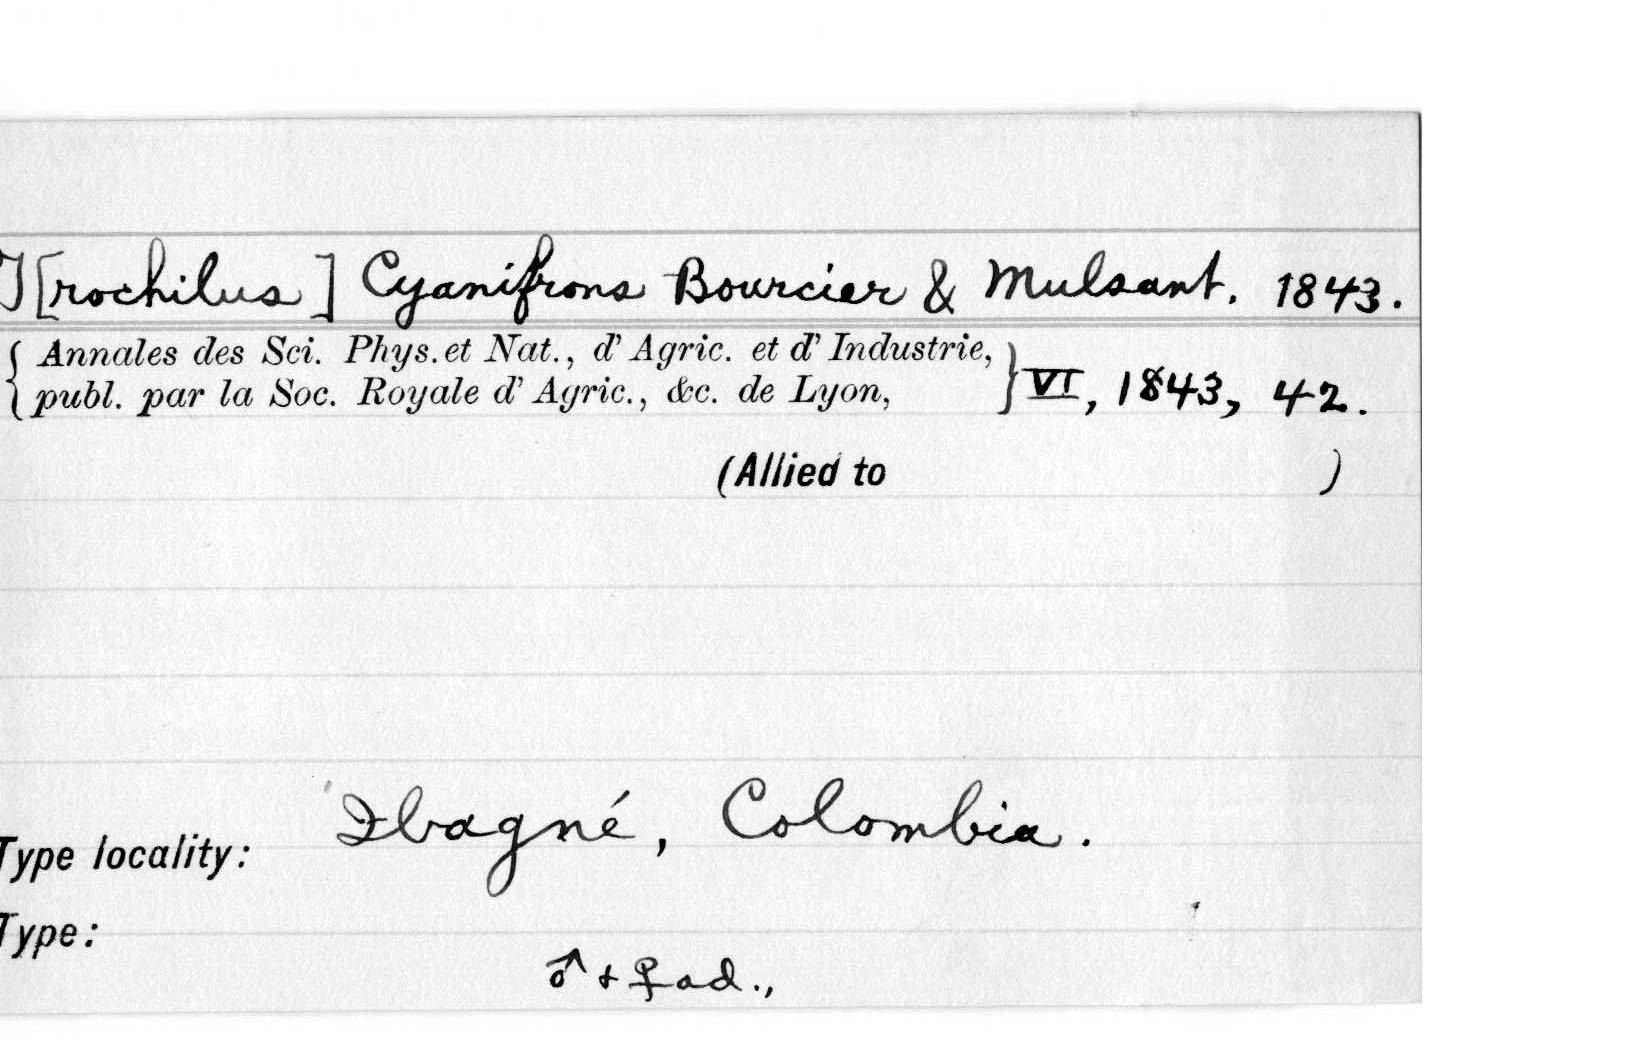 T[rochilus] Cyanifrons Bourcier & Mulsant. 1843.
{ Annales des Sci. Phys. et Nat., d' Agric. et d' Industrie,
publ. par la Soc. Royale d' Agric., &c. de Lyon, } VI, 1843, 42.
(Allied to )
Type locality: Ibagné, Colombia.
Type:
♂ + ♀ ad.,